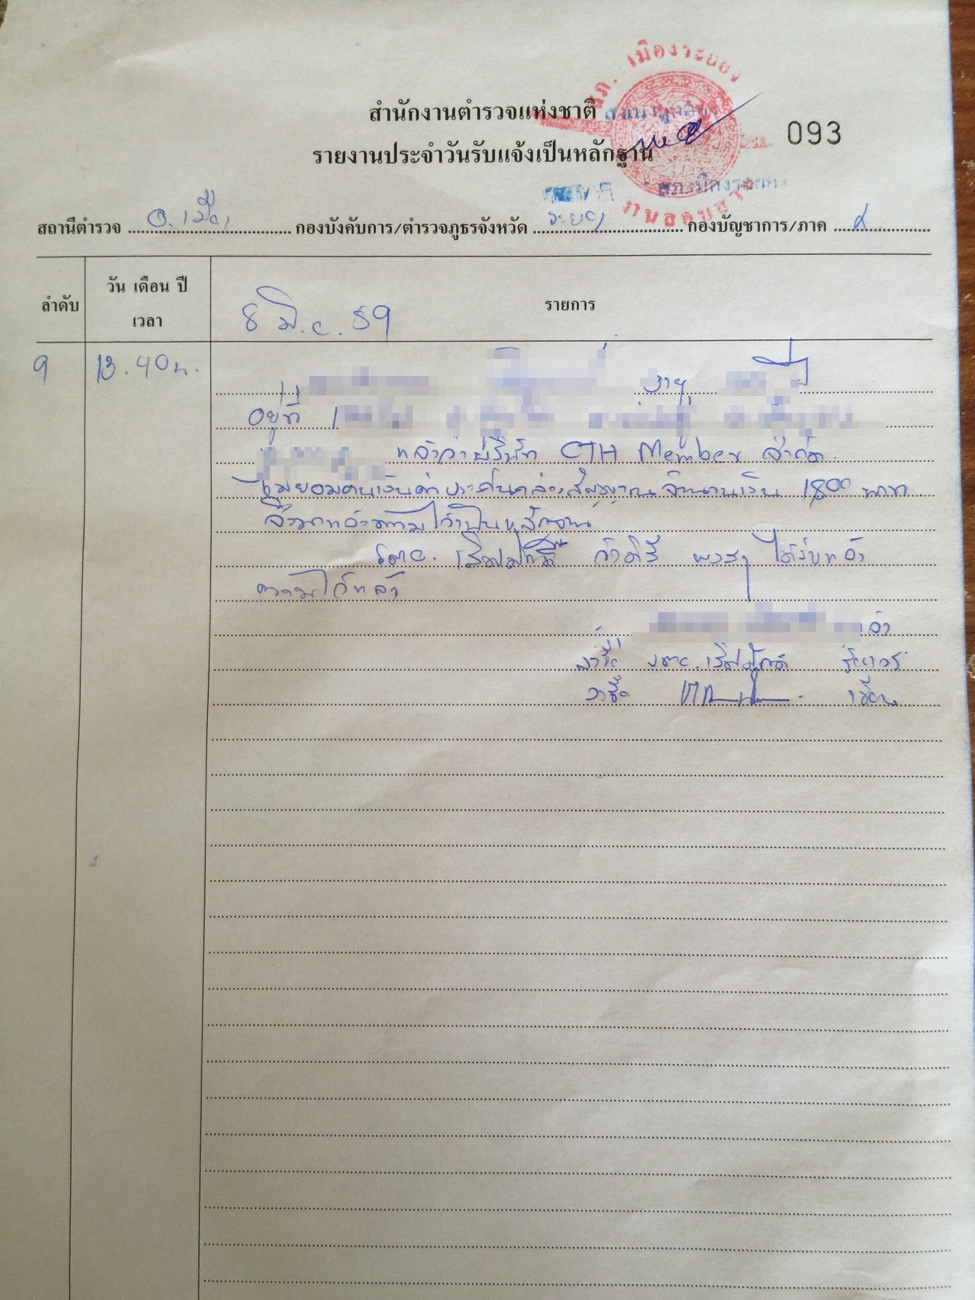 สภ.เมืองระยอง
สำนักงานตำรวจแห่งชาติ
093
รายงานประจำวันรับแจ้งเป็นหลักฐาน
สภ.เมืองระยอง
สถานีตำรวจ อ.เมือง กองบังคับการ/ตำรวจภูธรจังหวัด ระยอง กองบัญชาการ/ภาค
ลำดับ
วัน เดือน ปี
เวลา
8 มิ.ย. 59
รายการ
9
13.40 น.
อายุ ปี
อยู่ที่ 1
แจ้งว่าบริษัท CTH Member จำกัด
ไม่ยอมคืนเงินค่าประกันกล่องสัญญาณ จำนวนเงิน 1,800 บาท
จึงมาแจ้งความไว้เป็นหลักฐาน
ได้รับแจ้ง
ความไว้แล้ว
แจ้ง
ลงชื่อ
ลงชื่อ เขียน